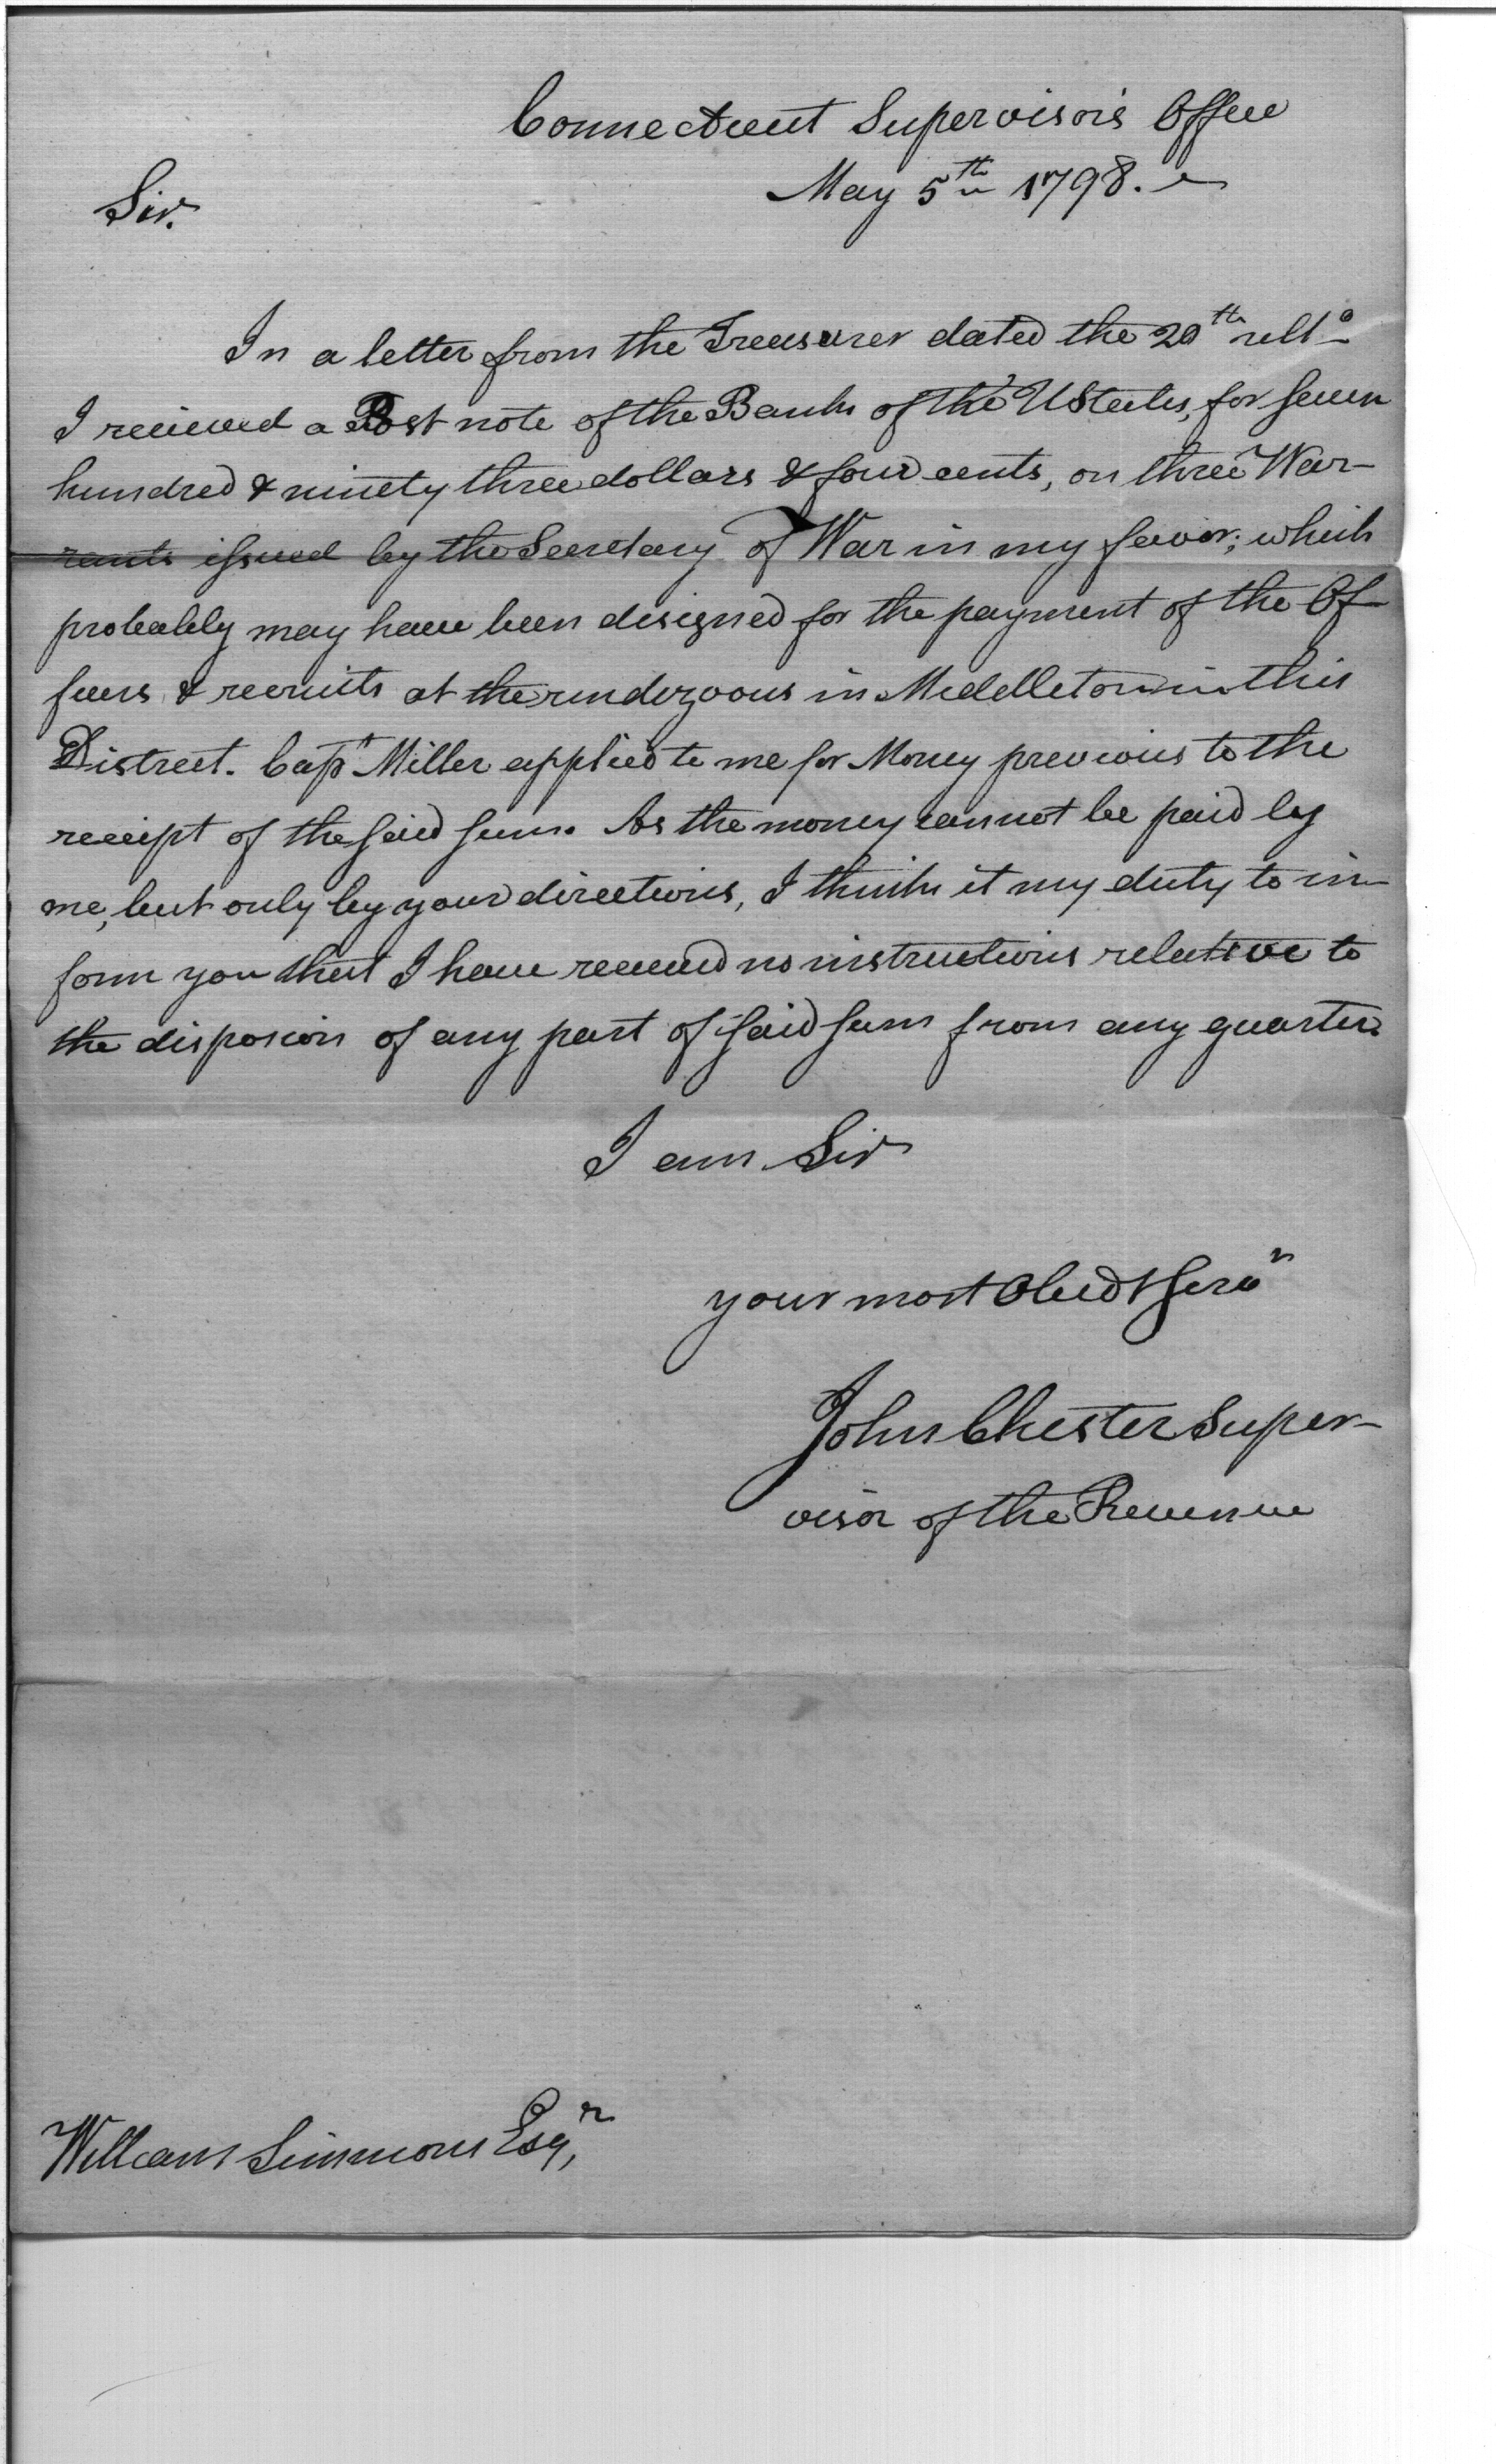 Connecticut Supervisors Office
May 5th 1798.
Sir.
In a letter from the Treasurer dated the 20th ulto
I received a Post note of the Bank of the UStates, for seven
hundred & ninety three dollars & four cents, on three War-
rants issued by the Secretary of War in my favor; which
probably may have been designed for the payment of the Of-
ficers & recruits at the rendezvous in Middletown in this
District. Capt Miller applied to me for Money previous to the
receipt of the said sum. As the money cannot be paid by
me, but only by your directions, I think it my duty to in-
form you that I have received no instructions relative to
the disposion of any part of said sum from any quarter.
I am Sir
your most Obedt Servn
John Chester Super-
visor of the Revenue
William Simmons Esqr,